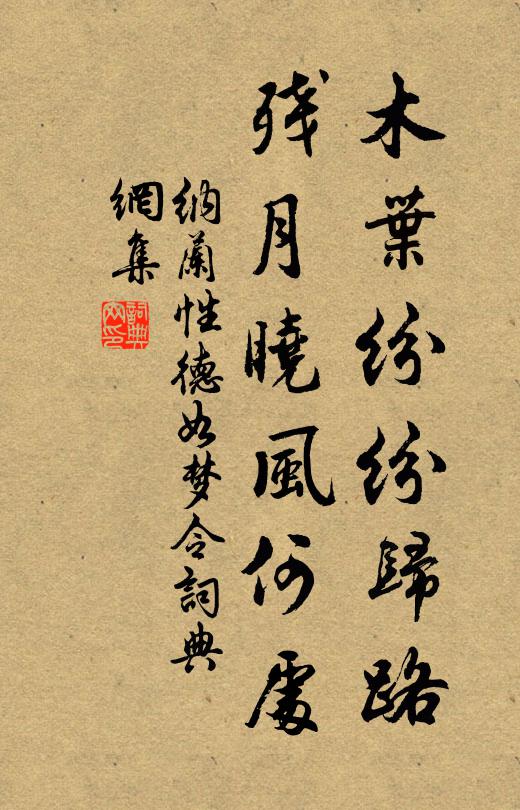 木葉紛紛歸路
残月曉風何處
納蘭性德如梦令詞典
網集
詞典
网印